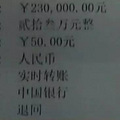 ：￥230,000.00元
：贰拾叁万元整
：￥50.00元
：人民币
：实时转账
：中国银行
：退回